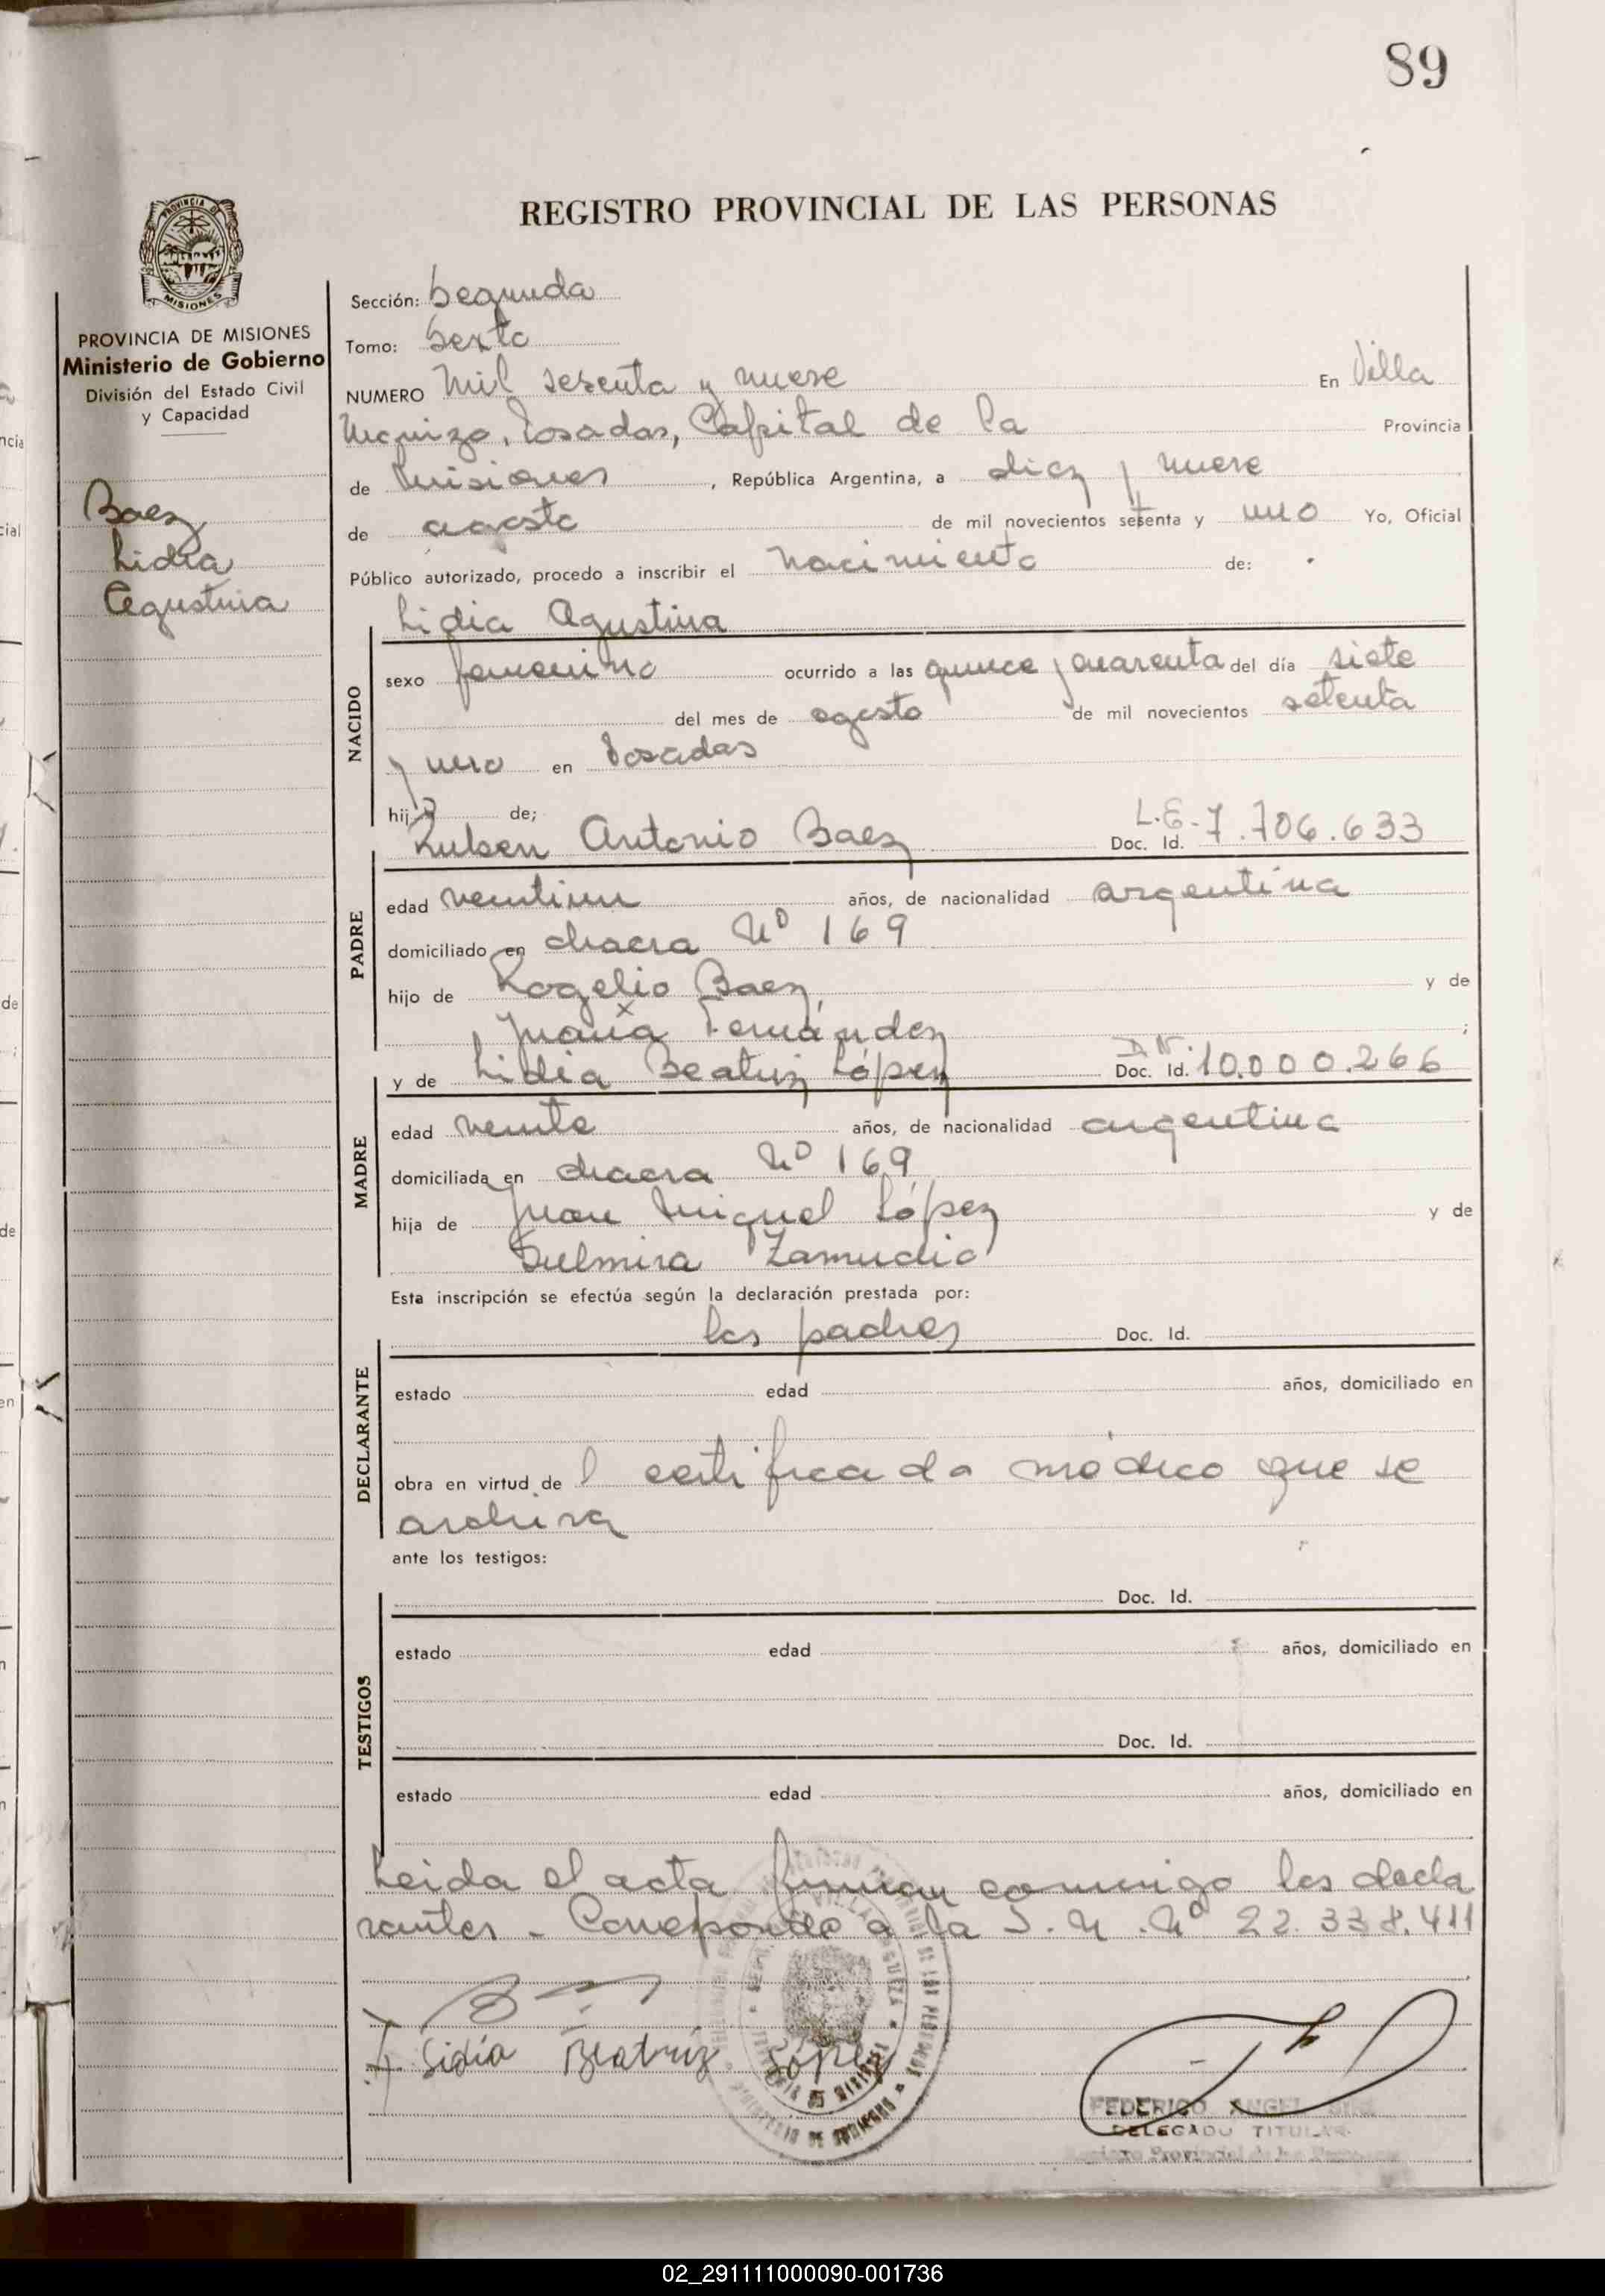 89
REGISTRO PROVINCIAL DE LAS PERSONAS
PROVINCIA DE
MISIONES
PROVINCIA DE MISIONES
Ministerio de Gobierno
División del Estado Civil
y Capacidad
Baez
Lidia
Agustina
Sección: Segunda
Tomo: Sexto
NUMERO Mil sesenta y nueve En Villa
Urquiza, Posadas, Capital de la Provincia
de Misiones, República Argentina, a diez y nueve
de agosto de mil novecientos setenta y uno Yo, Oficial
Público autorizado, procedo a inscribir el nacimiento de:
Lidia Agustina
NACIDO
sexo femenino ocurrido a las quince y cuarenta del día siete
del mes de agosto de mil novecientos setenta
y uno en Posadas
hija de;
Ruben Antonio Baez Doc. Id. L.E. 7.706.633
PADRE
edad veintiun años, de nacionalidad argentina
domiciliado en chacra Nº 169
hijo de Rogelio Baez, y de
María Fernández ;
y de Lidia Beatriz López Doc. Id. D.N.I. 10.000.266
MADRE
edad veinte años, de nacionalidad argentina
domiciliada en chacra Nº 169
hija de Juan Miguel López y de
Zamudio
Esta inscripción se efectúa según la declaración prestada por:
los padres Doc. Id.
DECLARANTE
estado edad años, domiciliado en
obra en virtud de l certificado médico que se
archiva
ante los testigos:
Doc. Id.
TESTIGOS
estado edad años, domiciliado en
Doc. Id.
estado edad años, domiciliado en
Leida el acta firman conmigo los decla
rantes - Corresponde a la Nº 22.338.411
Lidia Beatriz López
FEDERICO ANGEL
DELEGADO TITULAR
Registro Provincial de las Personas
02_291111000090-001736